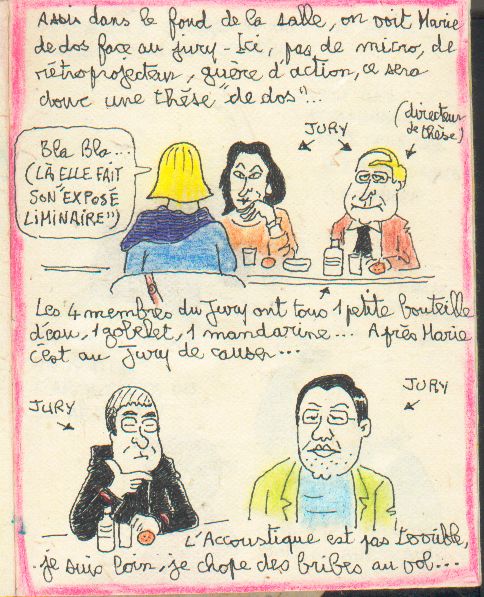 Assis dans le fond de la salle, on voit Marie
de dos face au jury - Ici, pas de micro, de
rétroprojecteur, guère d'action, ce sera
donc une thèse "de dos"...
JURY
(directeur
de thèse)
Bla Bla...
(LÀ ELLE FAIT
SON "EXPOSÉ
LIMINAIRE")
Les 4 membres du Jury ont tous 1 petite bouteille
d'eau, 1 gobelet, 1 mandarine... Après Marie
c'est au Jury de causer...
JURY
JURY
L'Accoustique est pas terrible,
je suis loin, je chope des bribes au vol...